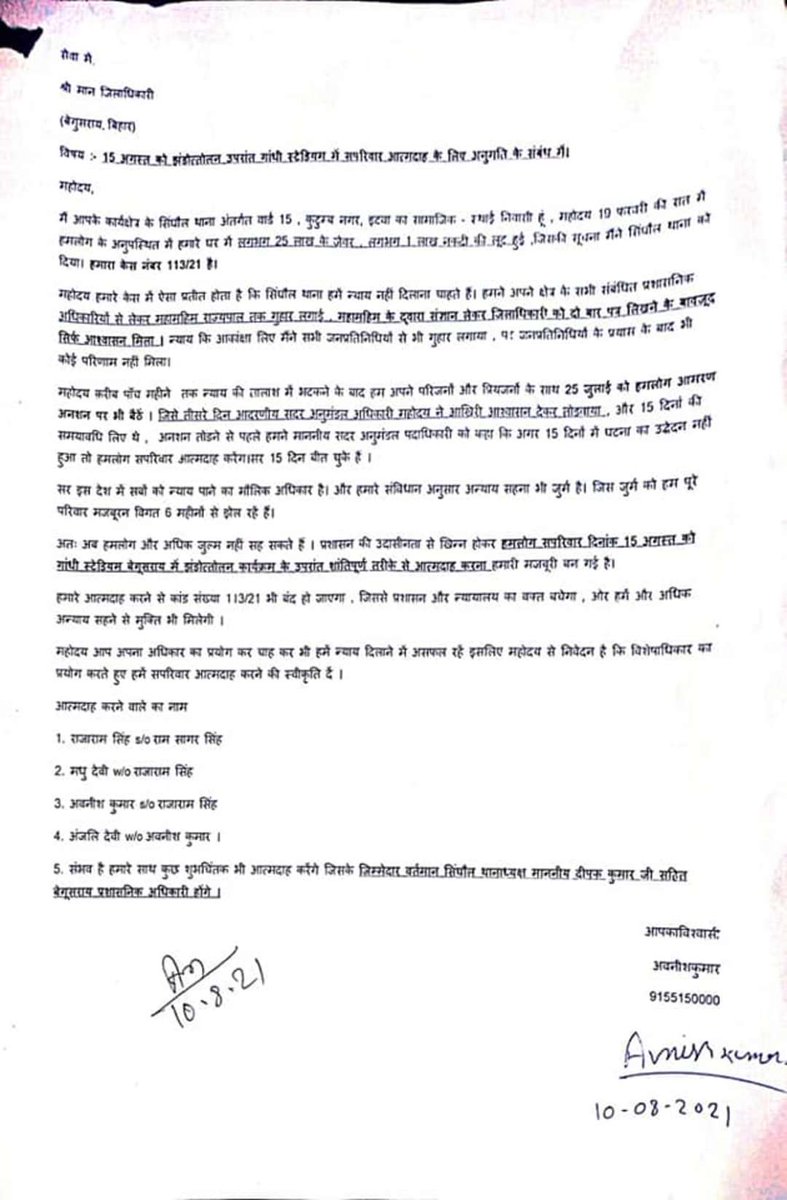 सेवा मै,
श्री मान जिलाधिकारी
(बेगुसराय, बिहार)
विषय :- 15 अगस्त को झंडोत्तोलन उपरांत गांधी स्टेडियम में सपरिवार आत्मदाह के लिए अनुमति के संबंध में।
महोदय,
मैं आपके कार्यक्षेत्र के सिंघौल थाना अंतर्गत वार्ड 15 , कुटुम्ब नगर, इटवा का सामाजिक - स्थाई निवासी हूं , महोदय 19 फरवरी की रात में
हमलोग के अनुपस्थित में हमारे घर में लगभग 25 लाख के जेवर , लगभग 1 लाख नकदी की लूट हुई ,जिसकी सूचना मैंने सिंघौल थाना को
दिया। हमारा केस नंबर 113/21 है।
महोदय हमारे केस में ऐसा प्रतीत होता है कि सिंघौल थाना हमें न्याय नहीं दिलाना चाहते हैं। हमने अपने क्षेत्र के सभी संबंधित प्रशासनिक
अधिकारियों से लेकर महामहिम राज्यपाल तक गुहार लगाई , महामहिम के द्वारा संज्ञान लेकर जिलाधिकारी को दो बार पत्र लिखने के बावजूद
सिर्फ आश्वासन मिला । न्याय कि आकांक्षा लिए मैंने सभी जनप्रतिनिधियों से भी गुहार लगाया , पर जनप्रतिनिधियों के प्रयास के बाद भी
कोई परिणाम नही मिला।
महोदय करीब पाँच महीने तक न्याय की तालाश में भटकने के बाद हम अपने परिजनों और प्रियजनों के साथ 25 जुलाई को हमलोग आमरण
अनशन पर भी बैठें । जिसे तीसरे दिन आदरणीय सदर अनुमंडल अधिकारी महोदय ने आखिरी आश्वासन देकर तोडवाया , और 15 दिनों की
समयावधि लिए थे , अनशन तोडने से पहले हमने माननीय सदर अनुमंडल पदाधिकारी को कहा कि अगर 15 दिनों में घटना का उद्भेदन नहीं
हुआ तो हमलोग सपरिवार आत्मदाह करेंग।सर 15 दिन बीत चुके हैं ।
सर इस देश में सबों को न्याय पाने का मौलिक अधिकार है। और हमारे संविधान अनुसार अन्याय सहना भी जुर्म है। जिस जुर्म को हम पूरे
परिवार मजबूरन विगत 6 महीनों से झेल रहें हैं।
अतः अब हमलोग और अधिक जुल्म नहीं सह सकते हैं । प्रशासन की उदासीनता से खिन्न होकर हमलोग सपरिवार दिनांक 15 अगस्त को
गांधी स्टेडियम बेगूसराय में झंडोत्तोलन कार्यक्रम के उपरांत शांतिपूर्ण तरीके से आत्मदाह करना हमारी मजबूरी बन गई है।
हमारे आत्मदाह करने से कांड संख्या 113/21 भी बंद हो जाएगा , जिससे प्रशासन और न्यायालय का वक्त बचेगा , ओर हमें और अधिक
अन्याय सहने से मुक्ति भी मिलेगी ।
महोदय आप अपना अधिकार का प्रयोग कर चाह कर भी हमें न्याय दिलाने में असफल रहें इसलिए महोदय से निवेदन है कि विशेषाधिकार का
प्रयोग करते हुए हमें सपरिवार आत्मदाह करने की स्वीकृति दें ।
आत्मदाह करने वाले का नाम
1. राजाराम सिंह s/o राम सागर सिंह
2. मधु देवी w/o राजाराम सिंह
3. अवनीश कुमार s/o राजाराम सिंह
4. अंजलि देवी w/o अवनीश कुमार ।
5. संभव है हमारे साथ कुछ शुभचिंतक भी आत्मदाह करेंगे जिसके जिम्मेदार वर्तमान सिंघौल थानाध्यक्ष माननीय दीपक कुमार जी सहित
बेगूसराय प्रशासनिक अधिकारी होंगे ।
आपकाविश्वासः
अवनीशकुमार
9155150000
10.8.21
Avnish Kumar
10-08-2021